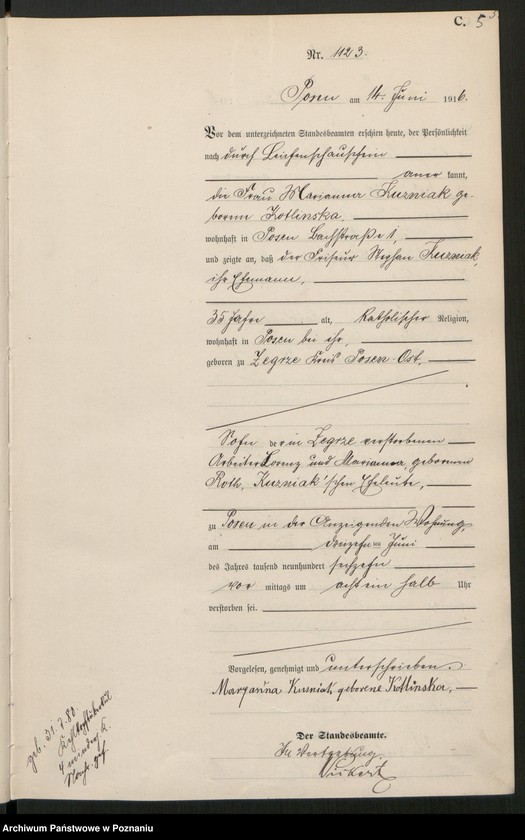 C. 5
Nr. 1123.
Posen am 14. Juni 1916.
Vor dem unterzeichneten Standesbeamten erschien heute, der Persönlichkeit
nach durch Leichenschauschein
aner kannt,
die Frau Marianna Kuzniak ge-
borene Kotlinska,
wohnhaft in Posen Bachstraße 1,
und zeigte an, daß der Friseur Stephan Kuzniak,
ihr Ehemann,
35 Jahre alt, katholischer Religion,
wohnhaft in Posen bei ihr,
geboren zu Zegrze Kreis Posen-Ost,
Sohn der in Zegrze verstorbenen
Arbeiter Lorenz und Marianna, geborenen
Roth, Kuzniak'schen Eheleute,
zu Posen in der Anzeigenden Wohnung,
am dreizehnten Juni
des Jahres tausend neunhundert sechzehn
vor mittags um acht ein halb Uhr
verstorben sei.
Vorgelesen, genehmigt und unterschrieben.
Maryanna Kuzniak, geborene Kotlinska,
Der Standesbeamte.
In Vertretung.
geb. 31.7.80
4 K.
Archiwum Państwowe w Poznaniu Archiwum Państwowe w Poznaniu